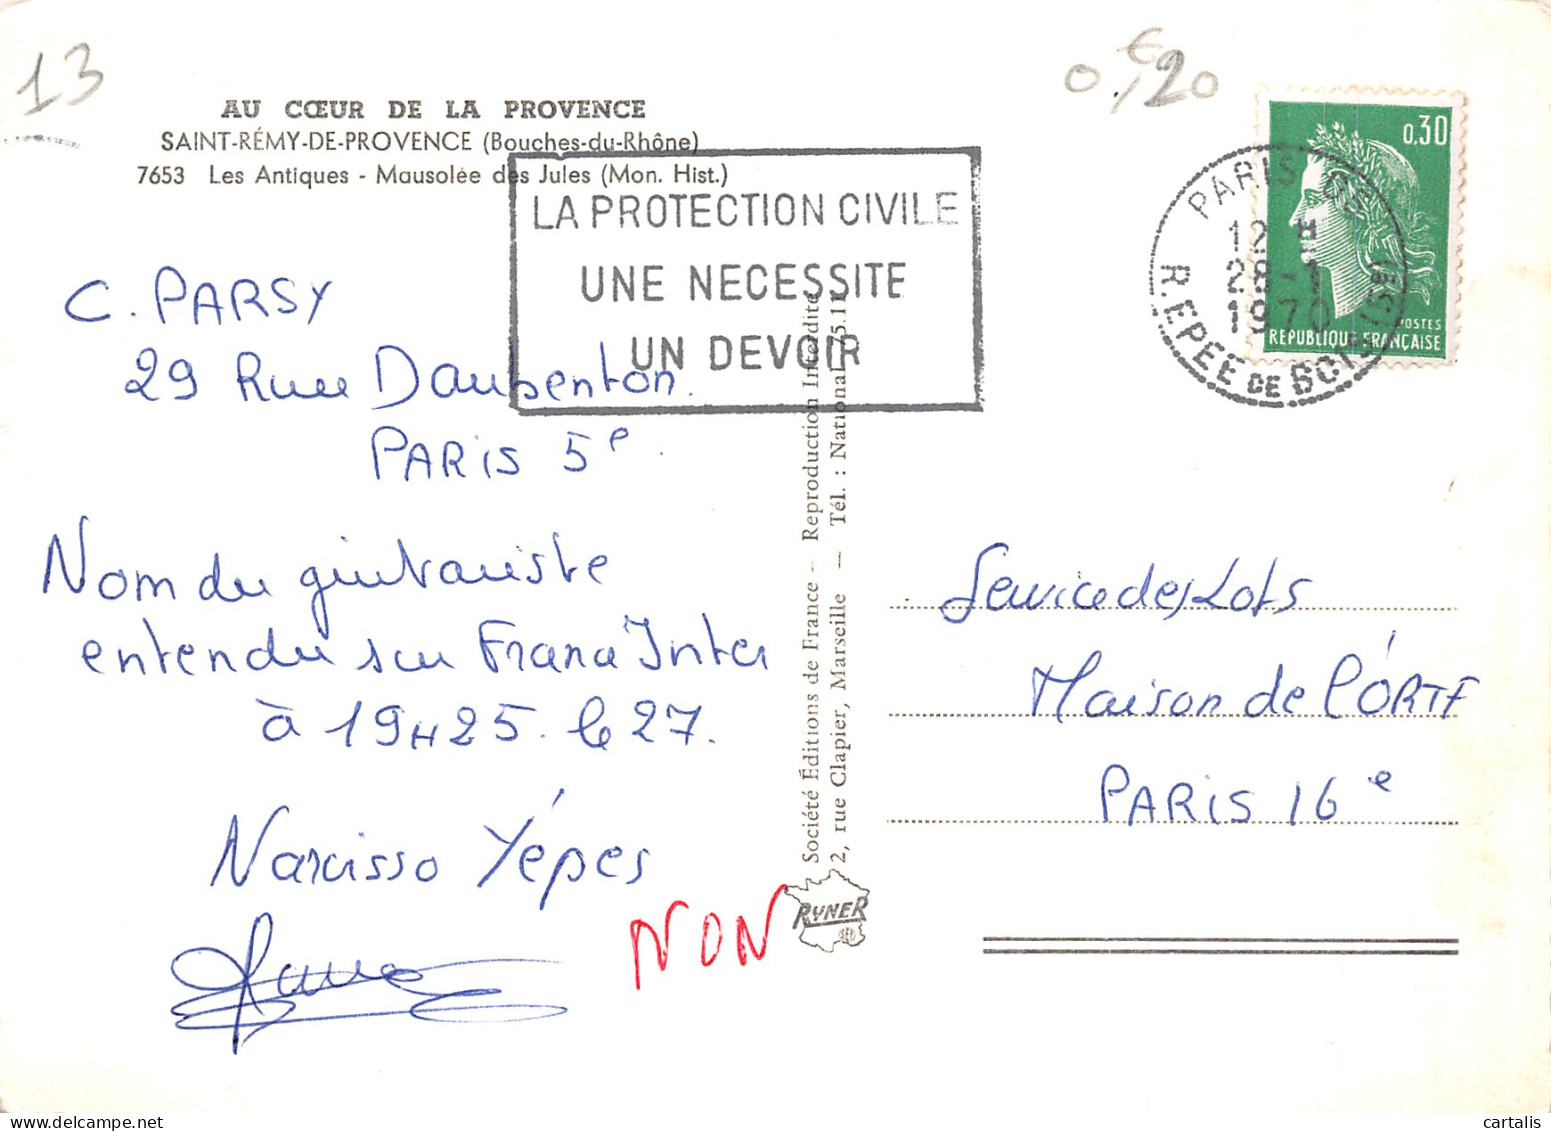 13
0,€20
AU CŒUR DE LA PROVENCE
SAINT-RÉMY-DE-PROVENCE (Bouches-du-Rhône)
7653 Les Antiques - Mausolée des Jules (Mon. Hist.)
LA PROTECTION CIVILE
UNE NECESSITE
UN DEVOIR
PARIS
12 H
28-1
1970
R. EPEE DE BOIS
0,30
POSTES
REPUBLIQUE FRANÇAISE
C. PARSY
29 Rue Daubenton.
PARIS 5e.
Nom du guitariste
entendu sur France Inter
à 19H25. le 27.
Narcisso Yépes
NON
Société Éditions de France - Reproduction Interdite
2, rue Clapier, Marseille - Tél. : National 75.11
RYNER
Service des Lots
Maison de l'ORTF
PARIS 16e
cartalis